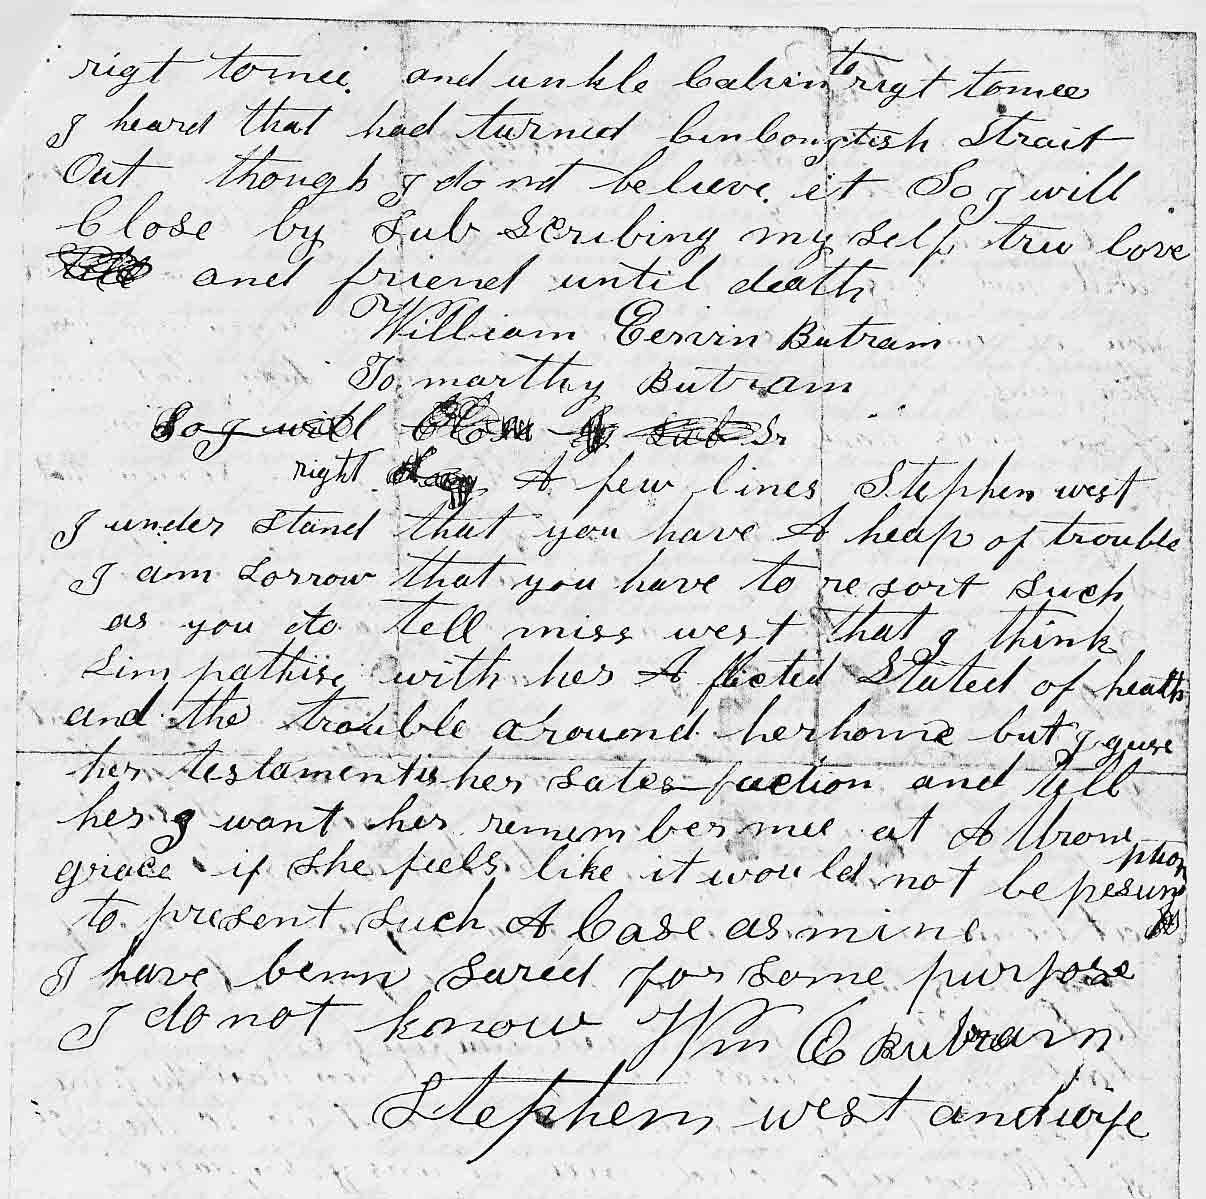 rigt tomee. and unkle Calvin to rigt tomee
I heard that had turned strait
Out though I do not beleeve it So I will
Close by Sub Scribing my self tru love
and friend until death
William Eervin Butram
To marthy Butram
So I will
right A few lines Stephen west
I under stand that you have A heap of trouble
I am Sorrow that you have to resort Such
as you do tell miss west that I think
Simpathise with her A flicted Stated of health
and the trouble around her home but I guse
her testament is her sates-faction and tell
her I want her remember mee at A throne
grace if She feels like it would not be
to present Such A Case as mine
I have benn Saved for some purpose
I do not know Wm E Butram
Stephen west and wife